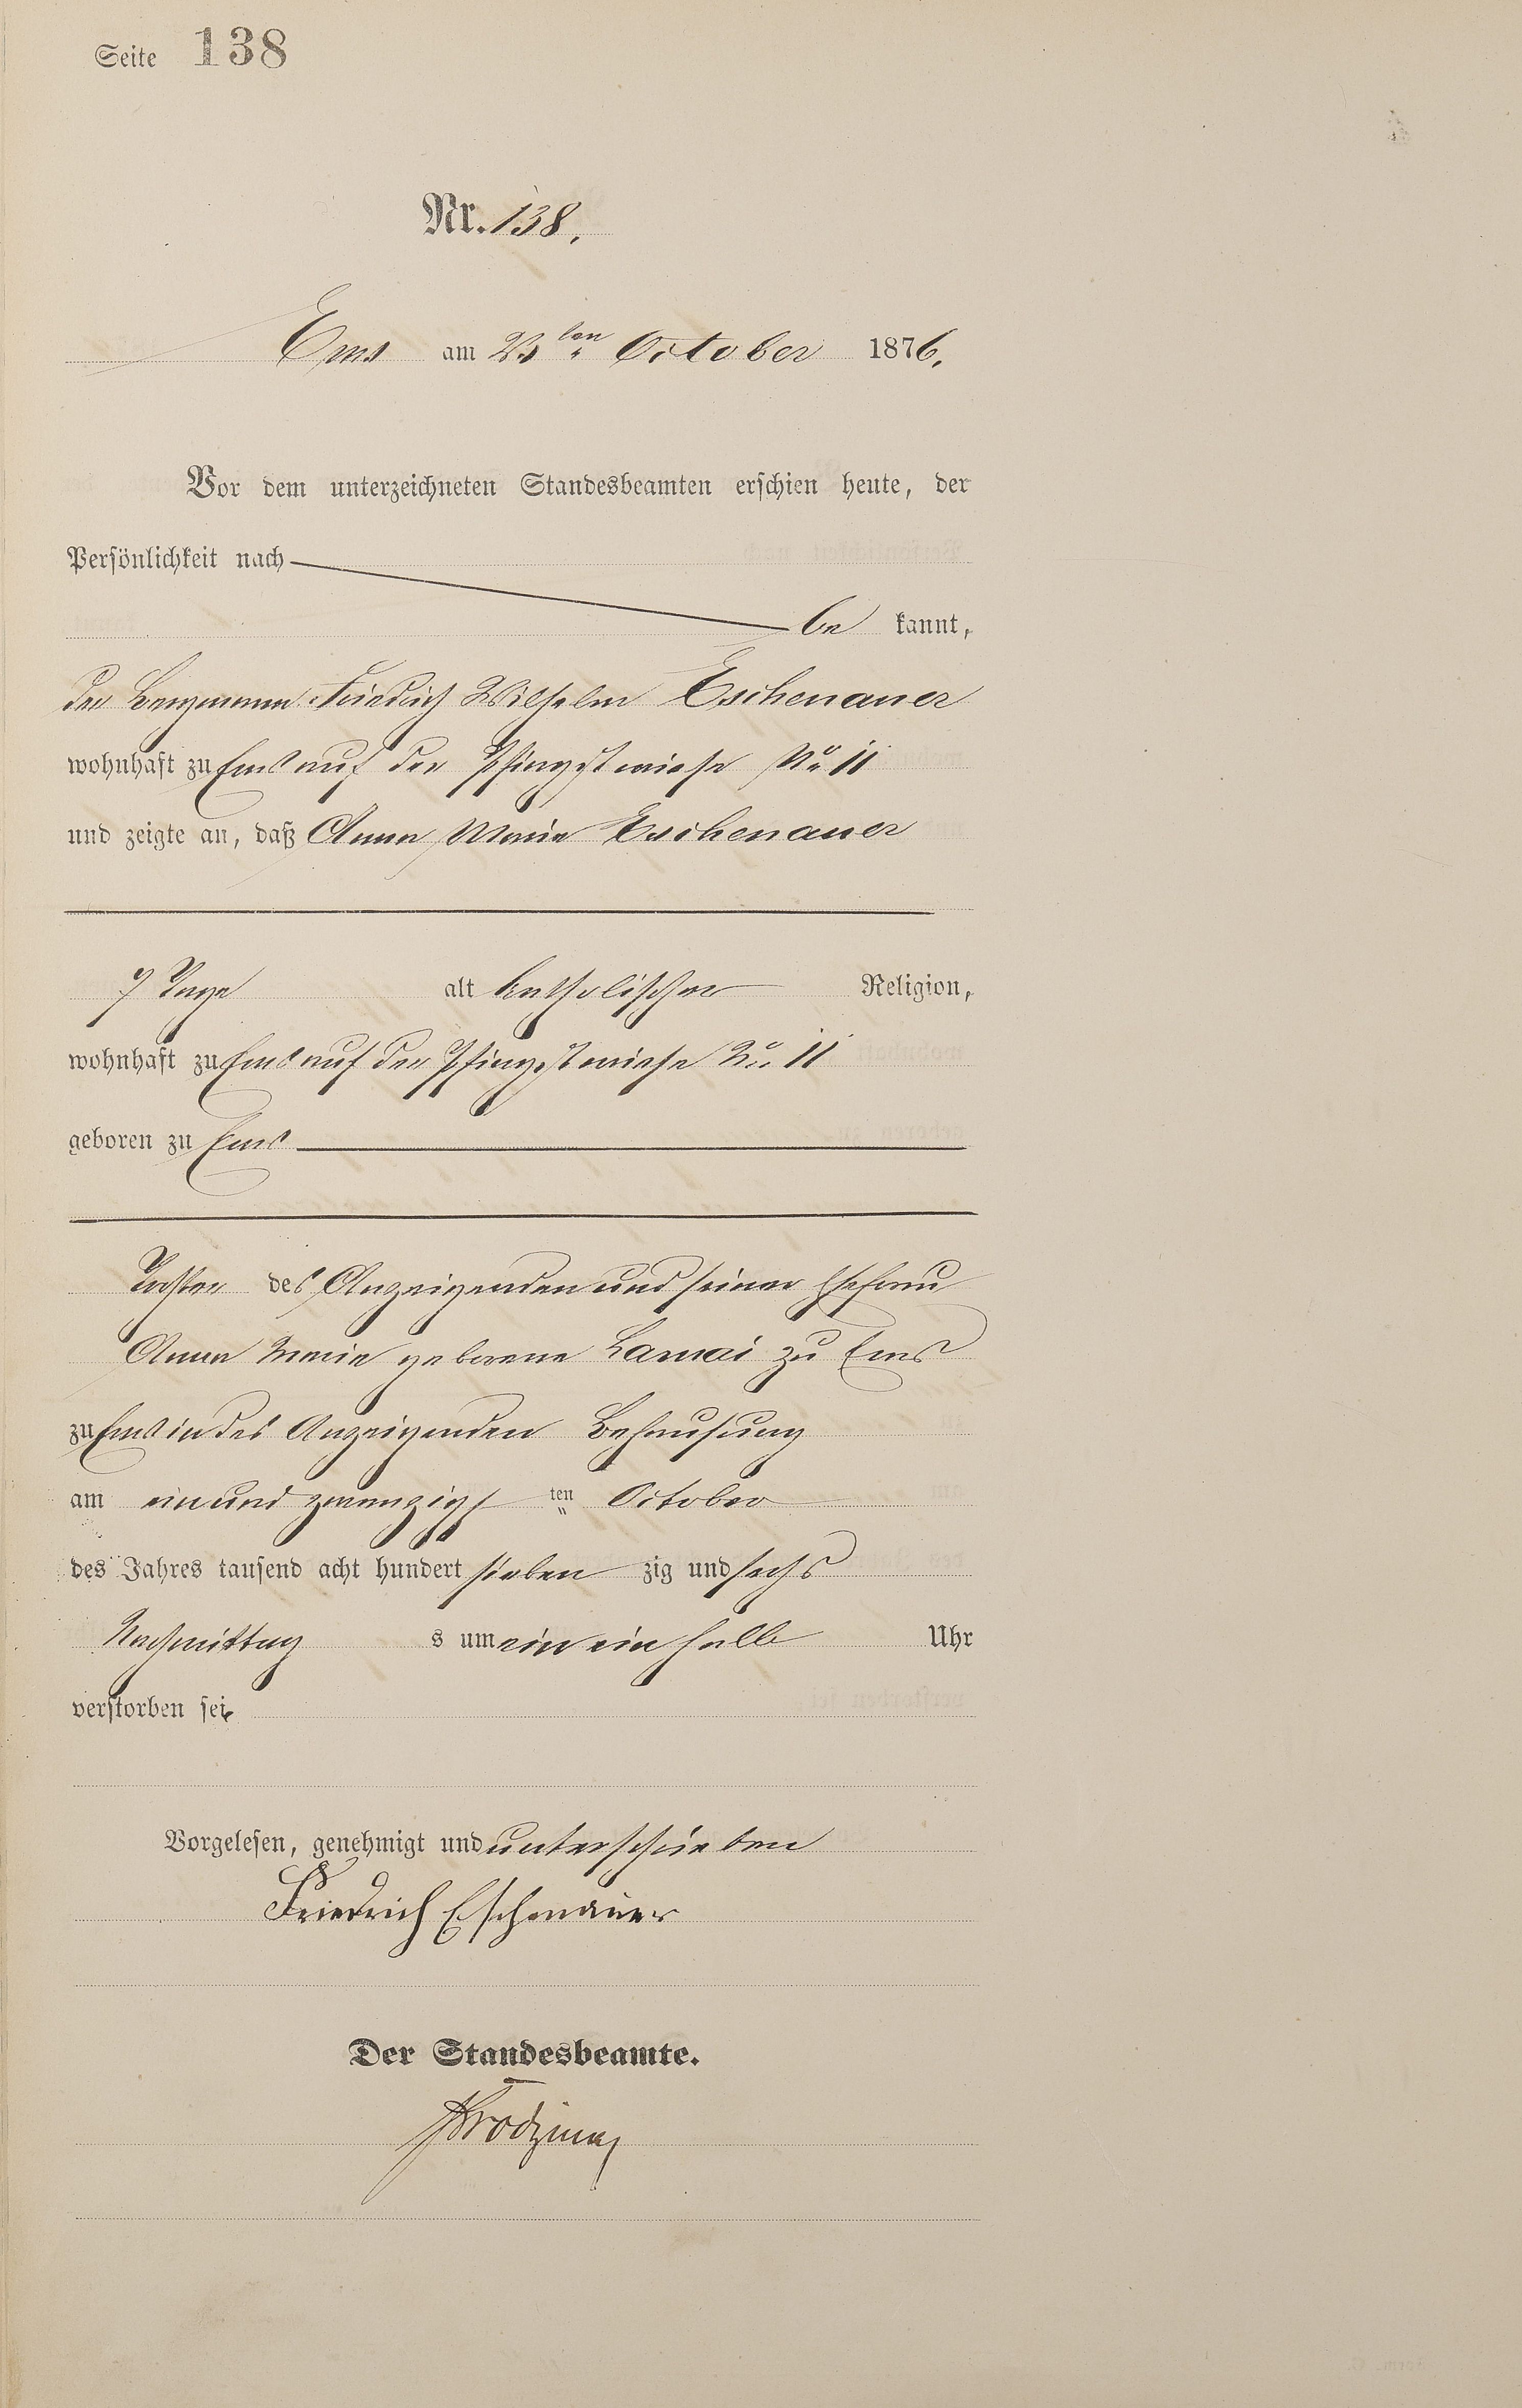 Seite 138
Nr. 138.
Ems am 23ten October 1876.
Vor dem unterzeichneten Standesbeamten erschien heute, der
Persönlichkeit nach
be kannt,
der Bergmann Friedrich Wilhelm Eschenauer
wohnhaft zu Ems auf der Pfingstwiese No 11
und zeigte an, daß Anna Marie Eschenauer
7 Tage alt katholischer Religion,
wohnhaft zu Ems auf der Pfingstwiese No 11
geboren zu Ems
Tochter des Anzeigenden und seiner Ehefrau
Anna Marie geborene zu Ems
zu Ems in des Anzeigenden Behausung
am ein und zwanzigs ten October
des Jahres tausend acht hundert sieben zig und sechs
Nachmittag s um ein ein halb Uhr
verstorben sei.
Vorgelesen, genehmigt und unterschrieben
Friedrich Eschenauer
Der Standesbeamte.